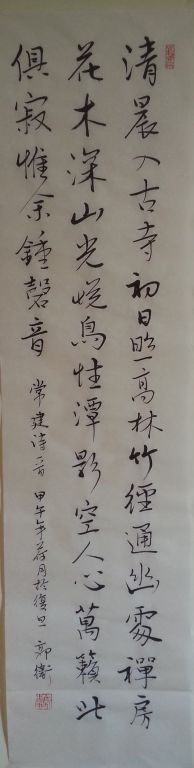 清晨入古寺初日照高林竹徑通幽處禪房
花木深山光悅鳥性潭影空人心萬籟此
俱寂惟余鍾磬音
常建诗一首 甲午年荷月於復旦 郭衛